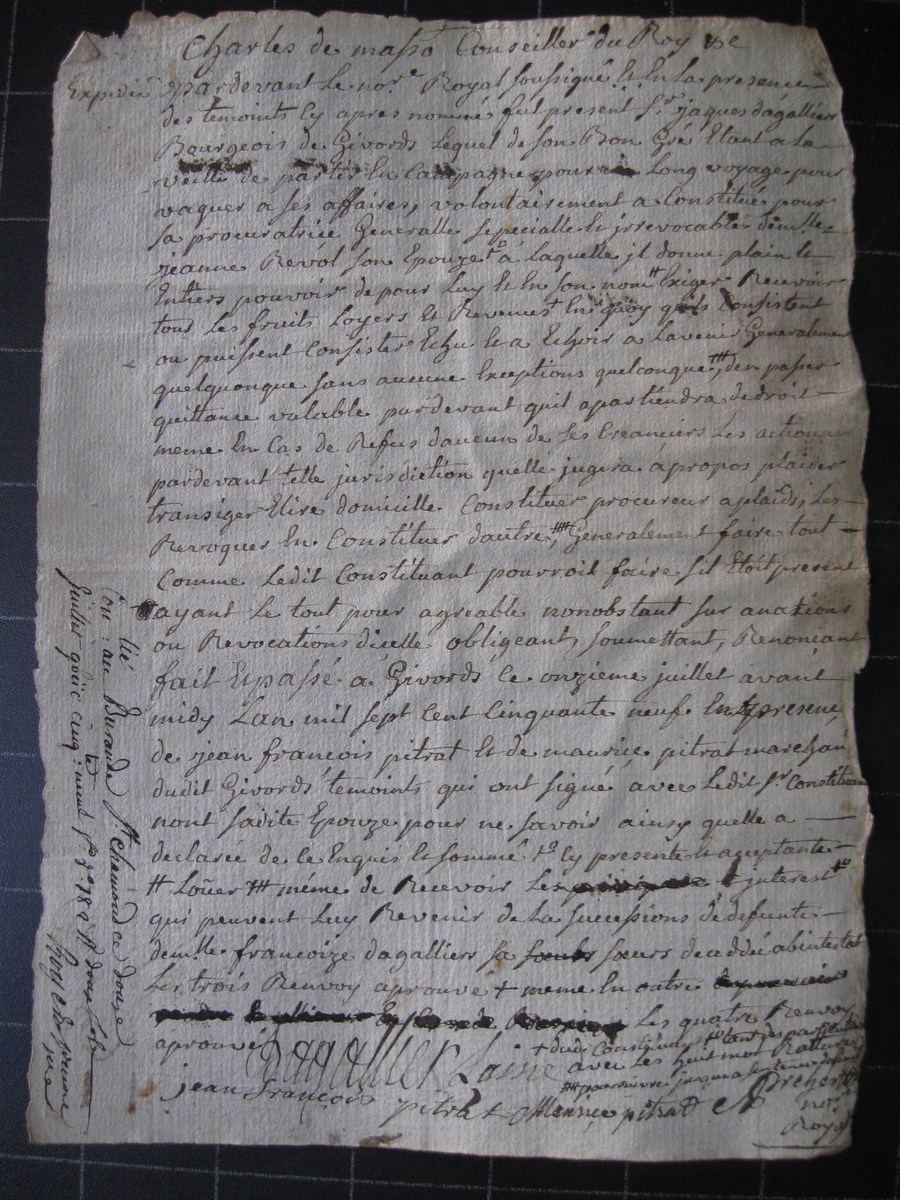 Charles de masso Conseiller du Roy &c
Expedié pardevant Le no.re Royal soussigné Et En La presence
des temoints cy apres nommé fut present s.r jaques dagallier
Bourgeois de Givords Lequel de son Bon Gré Etant a La
veille de partir En Campagne pour un Long voyage pour
vaquer a ses affaires, volontairement a Constitué pour
sa procuratrice Generalle specialle Et jrrevocable dem.lle
jeanne Revol son Epouze + a Laquelle jl donne plain Et
Entiers pouvoir de pour Luy Et En son nom # Exiger Recevoir
tous Les fruits Loyers Et Revenus En quoy quils Consistent
ou puissent Consister Echu Et a Echoir a Lavenir Generalement
quelquonque sans aucune Exceptions quelconque, den passer
quittance valable pardevant quil apartiendra de droit
meme En Cas de Refus daucun de ses Creanciers Les actionner
pardevant telle jurisdiction quelle jugera a propos plaider
transiger Elire domicille Constituer procureur a plaids, Les
Revoquer En Constituer dautre, Generalement faire tout
Comme Ledit Constituant pourroit faire sil Etoit present
ayant Le tout pour agreable nonobstant sur anations
ou Revocations dicelle obligeant, soumettant, Renonçant
fait Et passé a Givords Le onzieme juillet avant
midy Lan mil sept Cent Cinquante neuf En presence
de jean francois pitrat Et de maurice pitrat marchan
dudit Givords temoints qui ont signé avec Ledit s.r Constituant
nont sadite Epouze pour ne savoir ainsy quelle a
declarée de ce Enquis Et sommé cy presente Et aceptante
# Loüer même de Recevoir Les interest
qui peuvent Luy Revenir de La successions de defunte
dem.lle francoize dagalliers sa soeurs decedée abintestat
Les trois Renvoy aprouve + meme En outre
Les quatre Renvoy
aprouvé + dudit Constituant
avec Les huit mot Ratturé
Dagallier Lainé
jusqua
jean François pitrat Maurice pitrat
Brcher
no.re
Royal
Con: au Durande St chamond ce douze
juillet